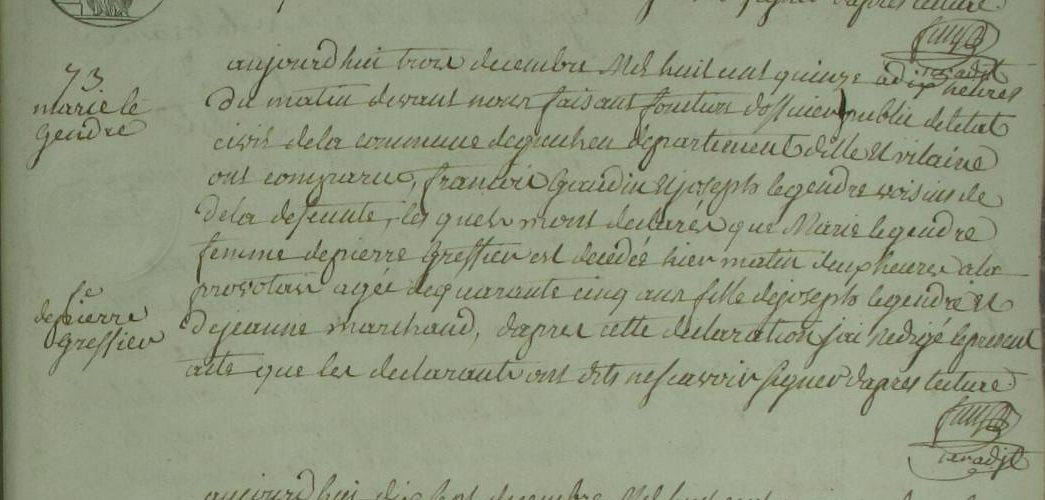 signer d'apres lecture
73
marie le
gendre
aujourd'hui trois decembre Mil huit cent quinze a dix heures
du matin devant nous faisant fonction d'officier public de letat
civil de la commune de departement d'ille et vilaine
ont comparu, francois et joseph legendre voisins de
de la defunte, lesquels m'ont declarés que Marie legendre
femme de pierre Greffier est decedée hier matin heures a la
agée de quarante cinq ans fille de joseph legendre et
fe
de pierre
Greffier
de jeanne marchand, d'apres cette declaration j'ai redigé le present
acte que les declarants ont dits ne scavoir signer d'apres lecture
aujourd'hui dix sept decembre Mil huit cent